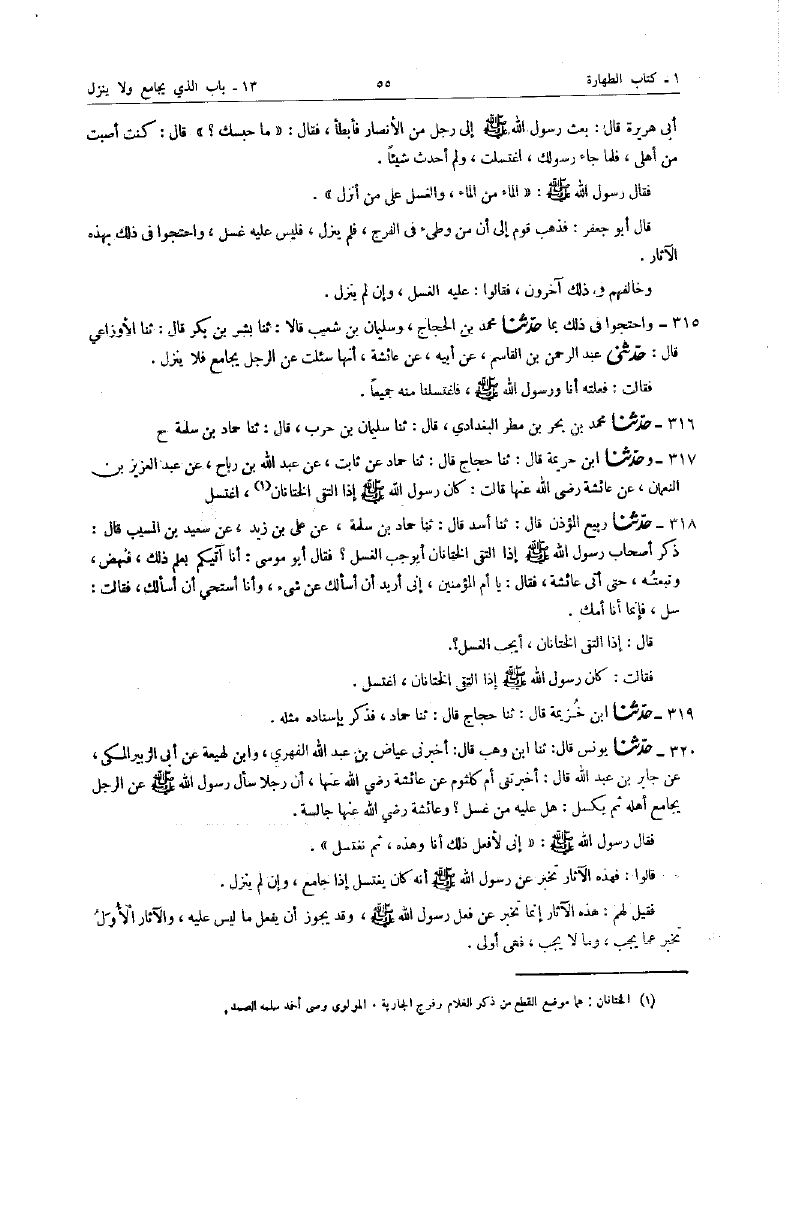 ١ ـ كتاب الطهارة ٥٥ ١٣ ـ باب الذي يجامع ولا ينزل
أبى هريرة قال : بعث رسول الله ﷺ إلى رجل من الأنصار فأبطأ ، فقال : « ما حبسك ؟ » قال : كنت أصبت
من أهلى ، فلما جاء رسولك ، اغتسلت ، ولم أحدث شيئاً .
فقال رسول الله ﷺ : « الماء من الماء ، والغسل على من أنزل » .
قال أبو جعفر : فذهب قوم إلى أن من وطىء فى الفرج ، فلم ينزل ، فليس عليه غسل ، واحتجوا فى ذلك بهذه
الآثار .
وخالفهم فى ذلك آخرون ، فقالوا : عليه الغسل ، وإن لم ينزل .
٣١٥ ـ واحتجوا فى ذلك بما حدثنا محمد بن الحجاج ، وسليمان بن شعيب قالا : ثنا بشر بن بكر قال : ثنا الأوزاعي
قال : حدثنى عبد الرحمن بن القاسم ، عن أبيه ، عن عائشة ، أنها سئلت عن الرجل يجامع فلا ينزل .
فقالت : فعلته أنا ورسول الله ﷺ ، فاغتسلنا منه جميعاً .
٣١٦ ـ حدثنا محمد بن بحر بن مطر البغدادي ، قال : ثنا سليمان بن حرب ، قال : ثنا حماد بن سلمة ح
٣١٧ ـ وحدثنا ابن خزيمة قال : ثنا حجاج قال : ثنا حماد عن ثابت ، عن عبد الله بن رباح ، عن عبد العزيز بن
النعمان ، عن عائشة رضى الله عنها قالت : كان رسول الله ﷺ إذا التقى الختانان(١) ، اغتسل
٣١٨ ـ حدثنا ربيع المؤذن قال : ثنا أسد قال : ثنا حماد بن سلمة ، عن على بن زيد ، عن سعيد بن المسيب قال :
ذكر أصحاب رسول الله ﷺ إذا التقى الختانان أيوجب الغسل ؟ فقال أبو موسى : أنا آتيكم بعلم ذلك ، فنهض ،
وتبعتُه ، حتى أتى عائشة ، فقال : يا أم المؤمنين ، إنى أريد أن أسألك عن شىء ، وأنا أستحي أن أسألك ، فقالت :
سل ، فإنما أنا أمك .
قال : إذا التقى الختانان ، أيجب الغسل ؟.
فقالت : كان رسول الله ﷺ إذا التقى الختانان ، اغتسل .
٣١٩ ـ حدثنا ابن خُزيمة قال : ثنا حجاج قال : ثنا حماد ، فذكر بإسناده مثله .
٣٢٠ ـ حدثنا يونس قال : ثنا ابن وهب قال : أخبرنى عياض بن عبد الله الفهري ، وابن لهيعة عن أبى الزبير المكى ،
عن جابر بن عبد الله قال : أخبرتنى أم كلثوم عن عائشة رضي الله عنها ، أن رجلا سأل رسول الله ﷺ عن الرجل
يجامع أهله ثم يكسل : هل عليه من غسل ؟ وعائشة رضي الله عنها جالسة .
فقال رسول الله ﷺ : « إنى لأفعل ذلك أنا وهذه ، ثم نغتسل » .
قالوا : فهذه الآثار تخبر عن رسول الله ﷺ أنه كان يغتسل إذا جامع ، وإن لم ينزل .
فقيل لهم : هذه الآثار إنما تخبر عن فعل رسول الله ﷺ ، وقد يجوز أن يفعل ما ليس عليه ، والآثار الأُوَلُ
تخبر عما يجب ، وما لا يجب ، فهى أولى .
(١) الختانان : هما موضع القطع من ذكر الغلام وفرج الجارية ، المولوي وصى أحمد سلمه الصمد .